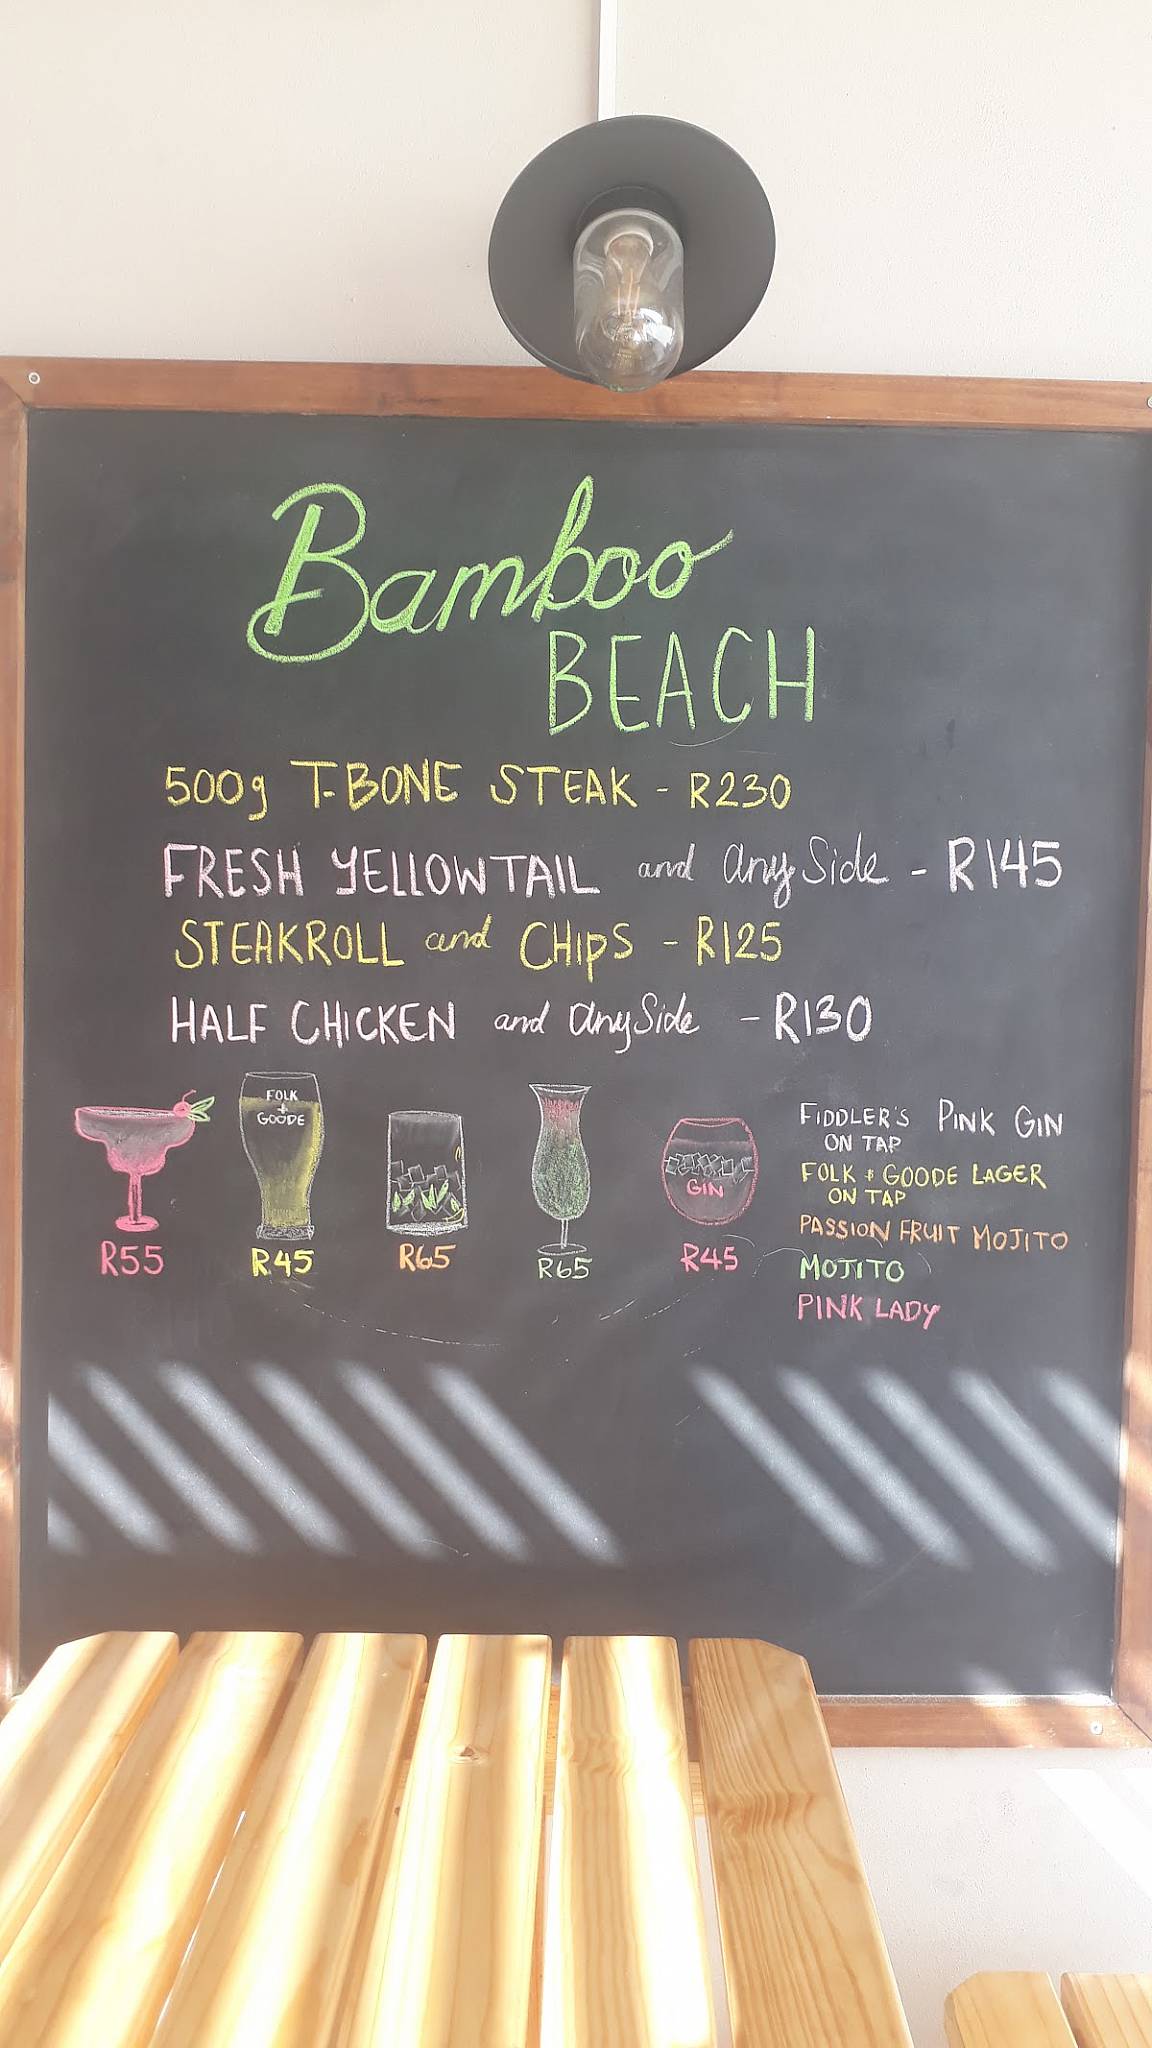 Bamboo
BEACH
500g T-BONE STEAK - R230
FRESH YELLOWTAIL and any Side - R145
STEAKROLL and CHIPS - R125
HALF CHICKEN and any Side - R130
FOLK
+
GOODE
GIN
R55
R45
R65
R65
R45
FIDDLER'S PINK GIN
ON TAP
FOLK + GOODE LAGER
ON TAP
PASSION FRUIT MOJITO
MOJITO
PINK LADY